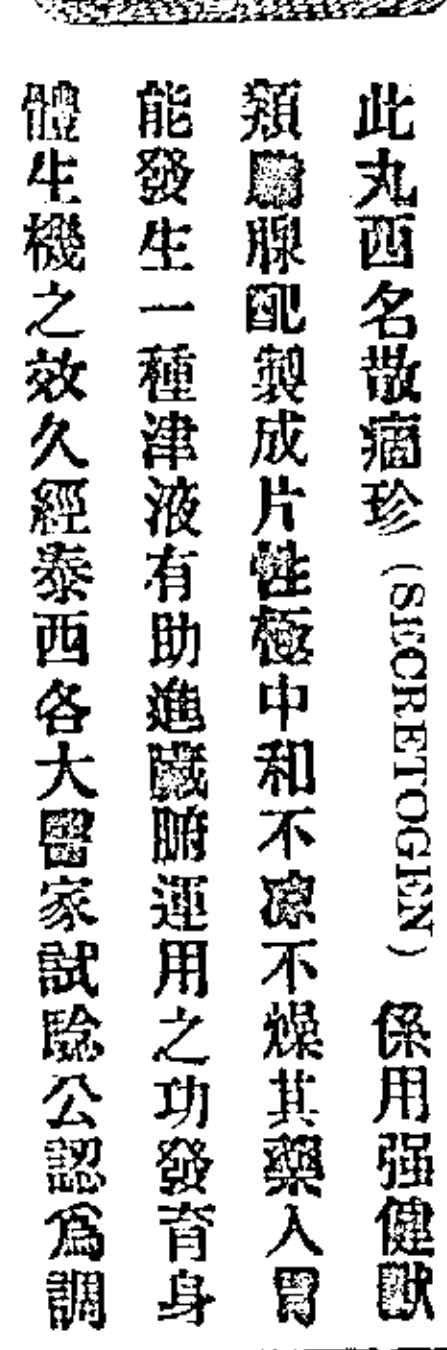 此丸西名散痼珍(SECRETOGEN)係用强健獸
類臟腺配製成片性極中和不凉不燥其藥入胃
能發生一種津液有助進臟腑運用之功發育身
體生機之效久經泰西各大醫家試騐公認爲調